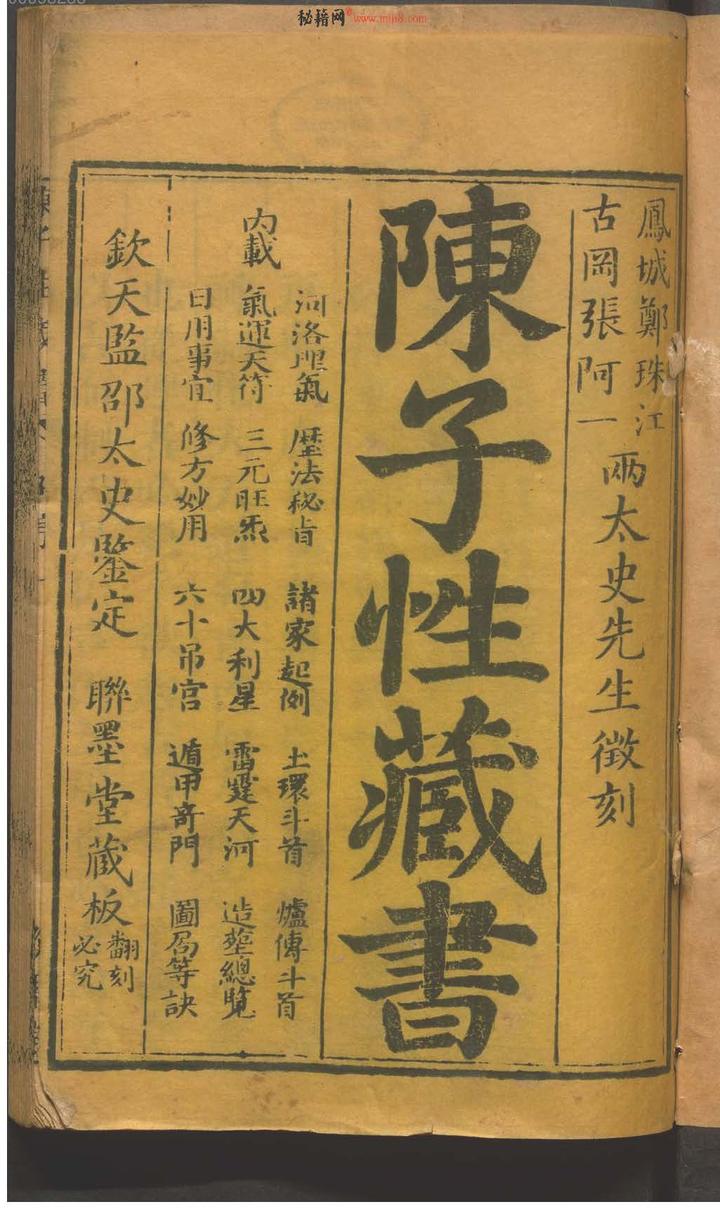 秘籍网 www.mji8.com
鳳城鄭珠江
古岡張阿一
兩太史先生徵刻
陳子性藏書
内載
河洛理氣 歷法秘旨 諸家起例 土環斗首 爐傳斗首
氣運天符 三元旺炁 四大利星 雷霆天河 造塟總覽
日用事宜 修方妙用 六十吊宮 遁甲奇門 圖局等訣
欽天監邵太史鑒定 聯墨堂藏板
翻刻
必究